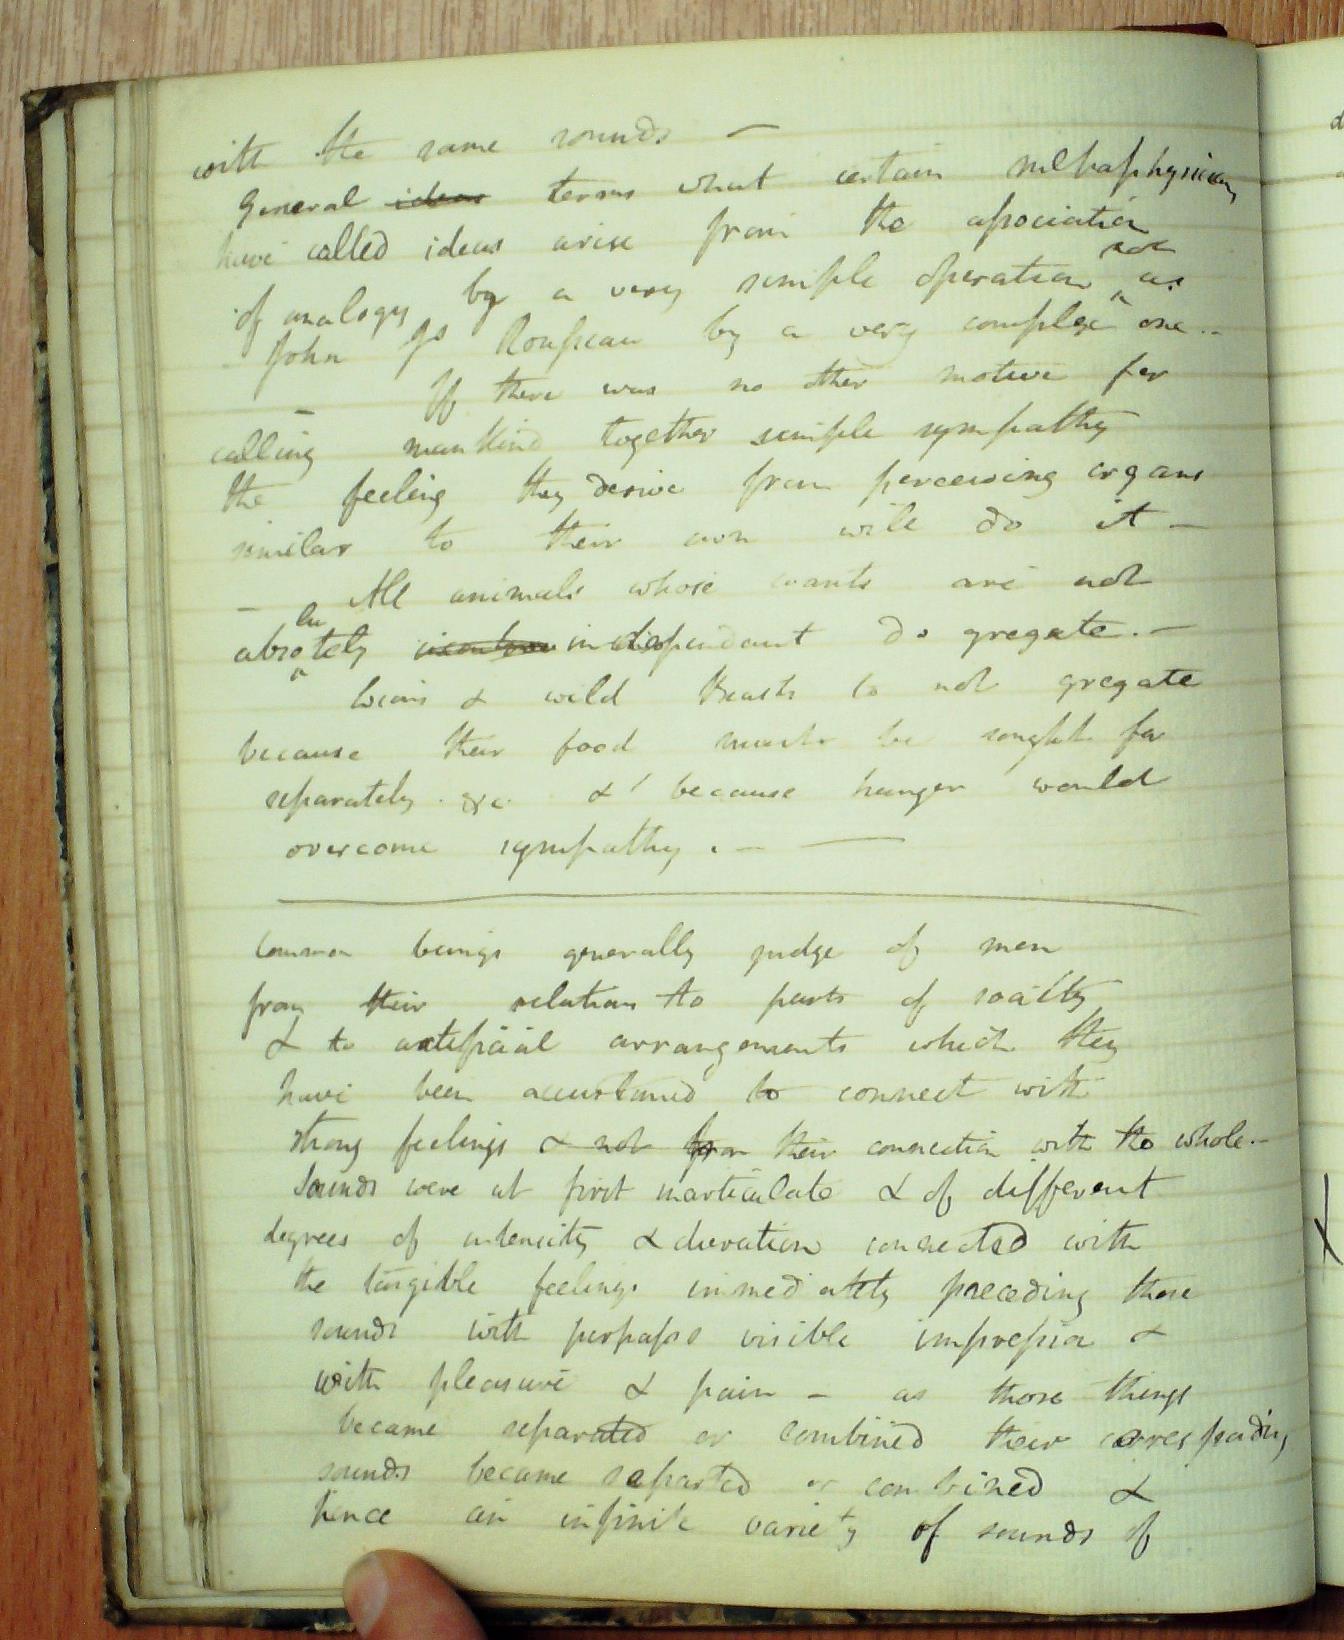 with the same sounds —
General ideas terms what certain metaphysicians
have called ideas arise from the association
of analogy by a very simple operation not as
John Js Rousseau by a very complex one --
— If there was no other motive for
calling mankind together simple sympathy
the feeling they derive from perceiving organs
similar to their own will do it —
— All animals whose wants are not
absolutely independant do gregate. —
Lions & wild Beasts do not gregate
because their food must be sought for
separately &c & because hunger would
overcome sympathy. — —
Common beings generally judge of men
from their relations to parts of society
& to artificial arrangements which they
have been accustomed to connect with
strong feelings & not from their connection with the whole. —
Sounds were at first inarticulate & of different
degrees of intensity & duration connected with
the tangible feelings immediately preceding those
sounds with perhaps visible impression &
with pleasure & pain — as those things
became separated or combined their corresponding
sounds became separted or combined &
hence an infinite variety of sounds of